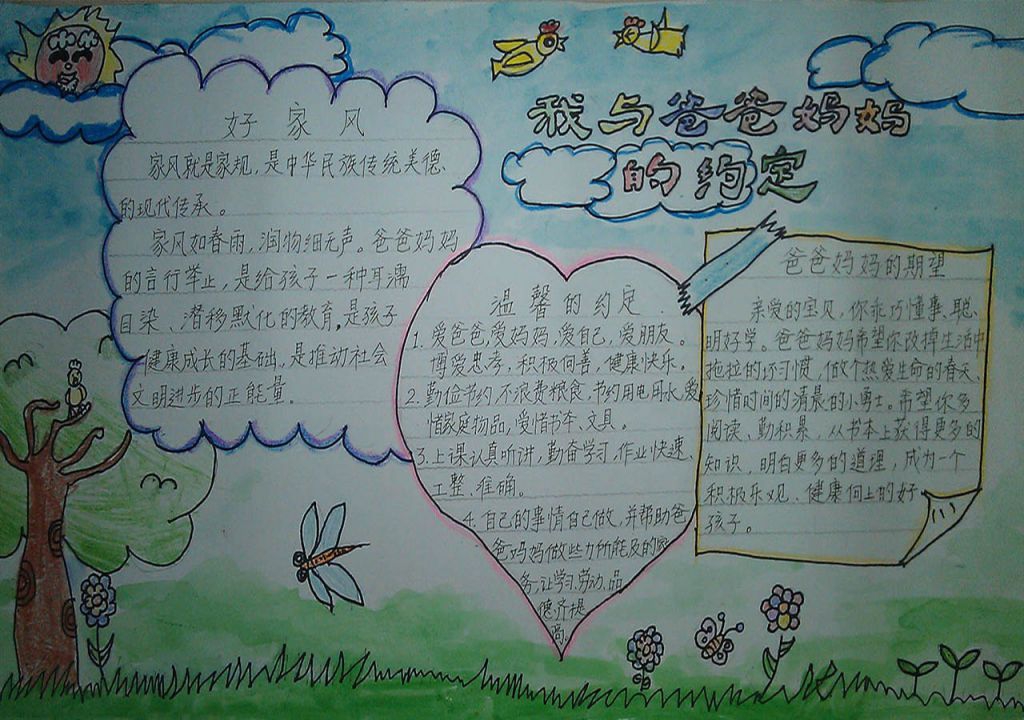 我与爸爸妈妈
的约定
好家风
家风就是家规，是中华民族传统美德
的现代传承。
家风如春雨，润物细无声。爸爸妈妈
的言行举止，是给孩子一种耳濡
目染、潜移默化的教育，是孩子
健康成长的基础，是推动社会
文明进步的正能量。
温馨的约定
1. 爱爸爸，爱妈妈，爱自己，爱朋友。
博爱思考，积极向善，健康快乐。
2. 勤俭节约不浪费粮食，节约用电用水，爱
惜家庭物品，爱惜书本、文具。
3. 上课认真听讲，勤奋学习，作业快速、
工整、准确。
4. 自己的事情自己做，并帮助爸
爸妈妈做些力所能及的家
务，让学习、劳动、品
德齐提
高。
爸爸妈妈的期望
亲爱的宝贝，你乖巧懂事、聪
明好学。爸爸妈妈希望你改掉生活中
拖拉的坏习惯，做个热爱生命的春天、
珍惜时间的清晨的小勇士。希望你多
阅读、勤积累，从书本上获得更多的
知识，明白更多的道理，成为一个
积极乐观、健康向上的好
孩子。